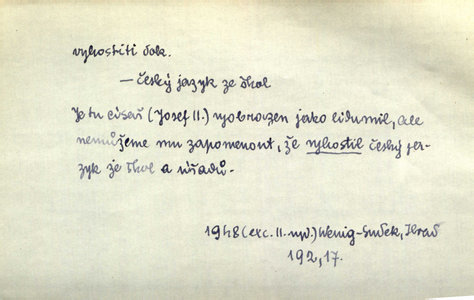 vyhostiti dok.
— český jazyk ze škol
Je tu císař (Josef II.) vyobrazen jako lidumil, ale
nemůžeme mu zapomenout, že vyhostil český ja-
zyk ze škol a úřadů.
1948 (exc. II. vyd.) Wenig-Suček, Hrad
192, 17.